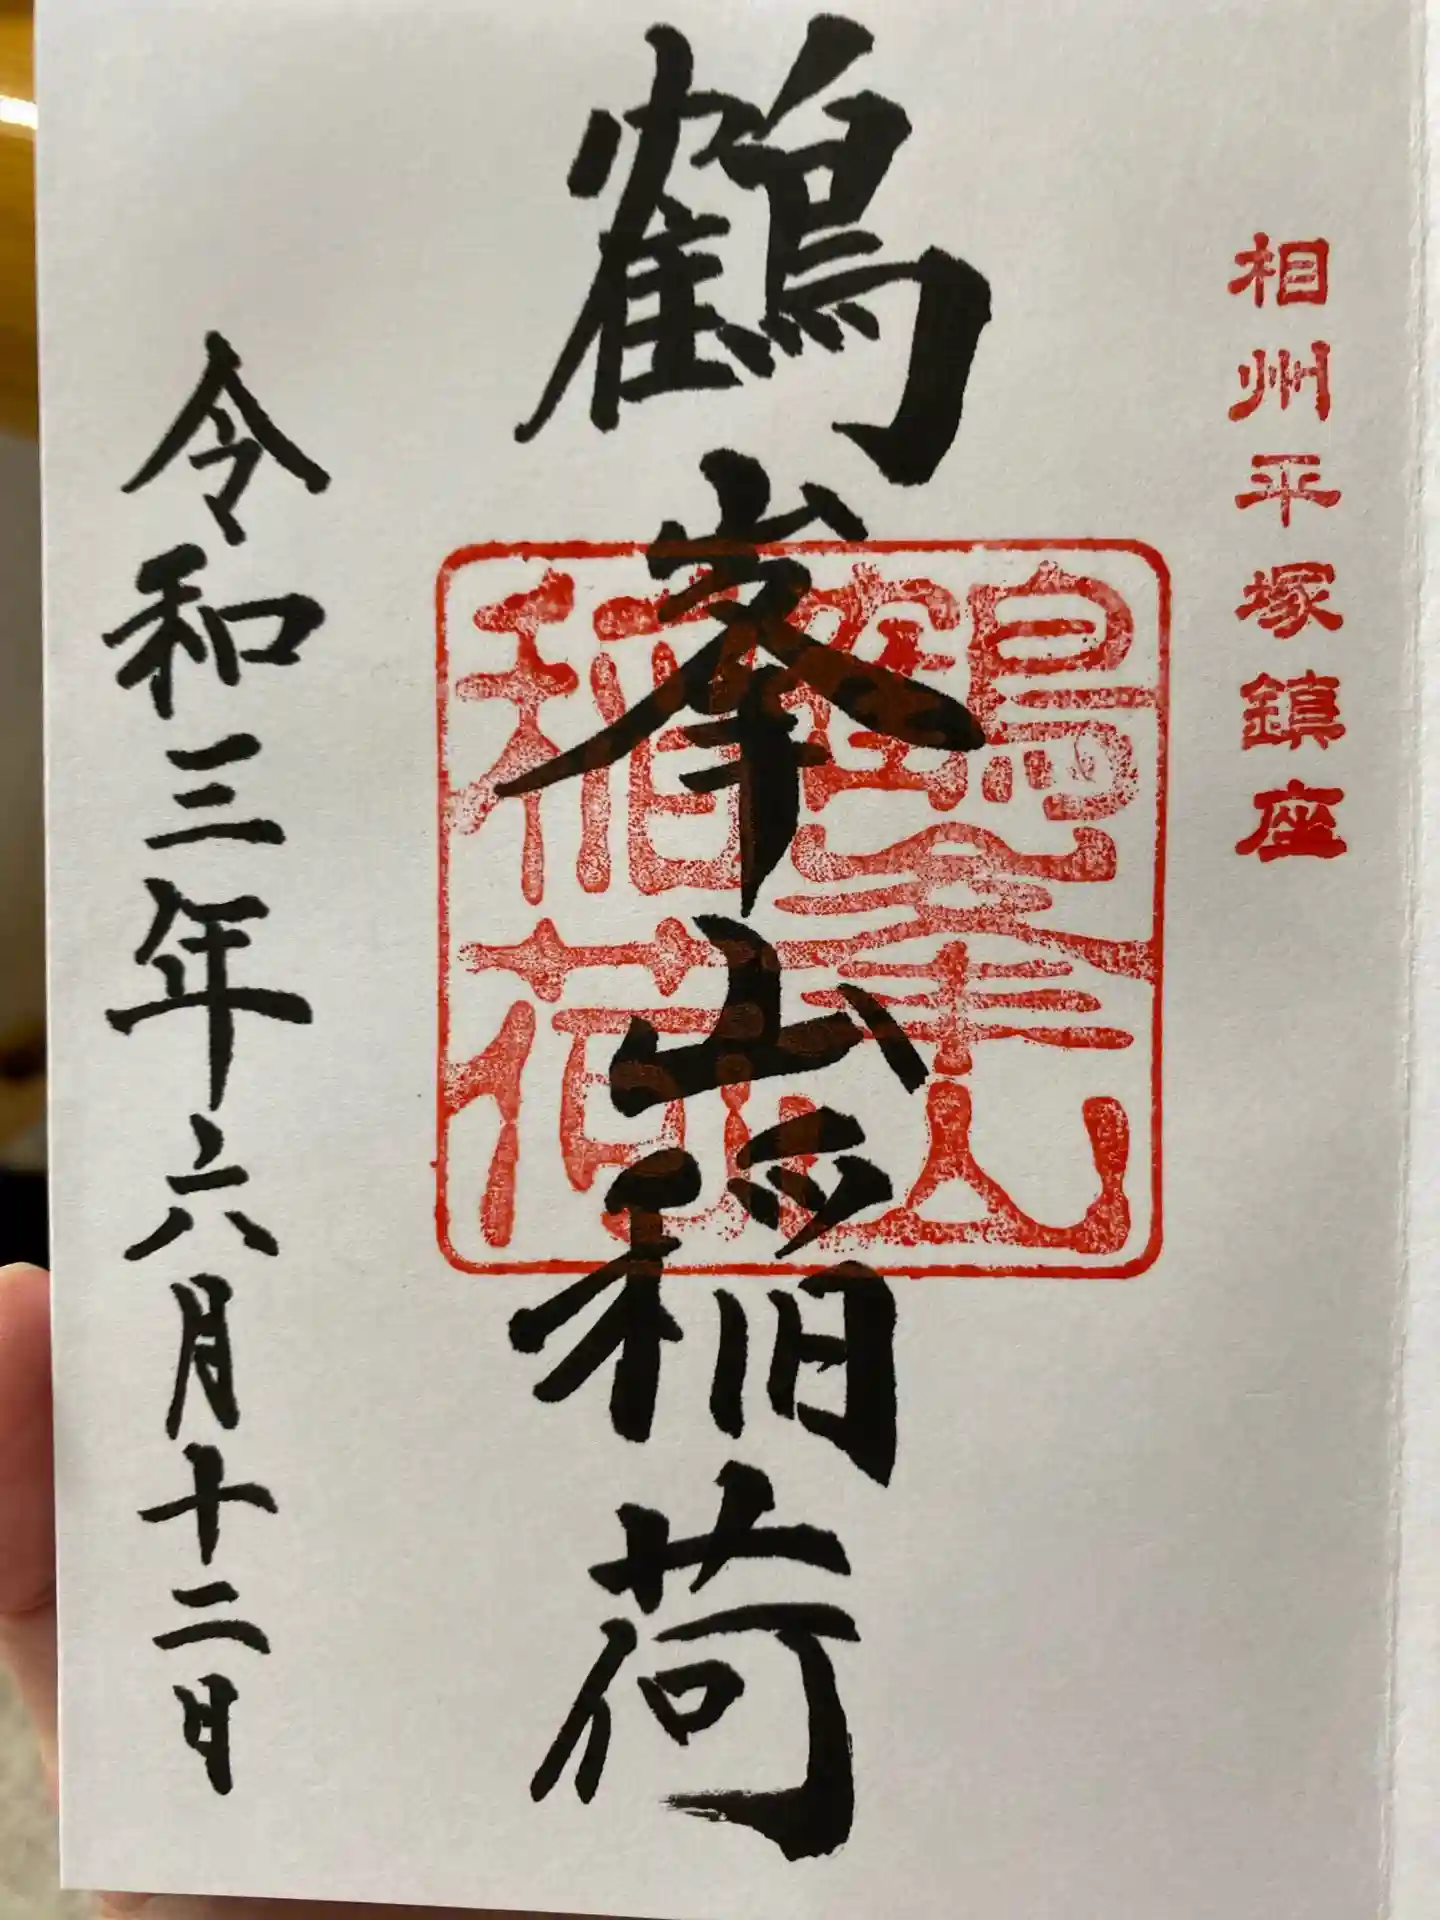 相州平塚鎮座
鶴峯山稲荷
鶴峯山稲荷
令和三年六月十二日